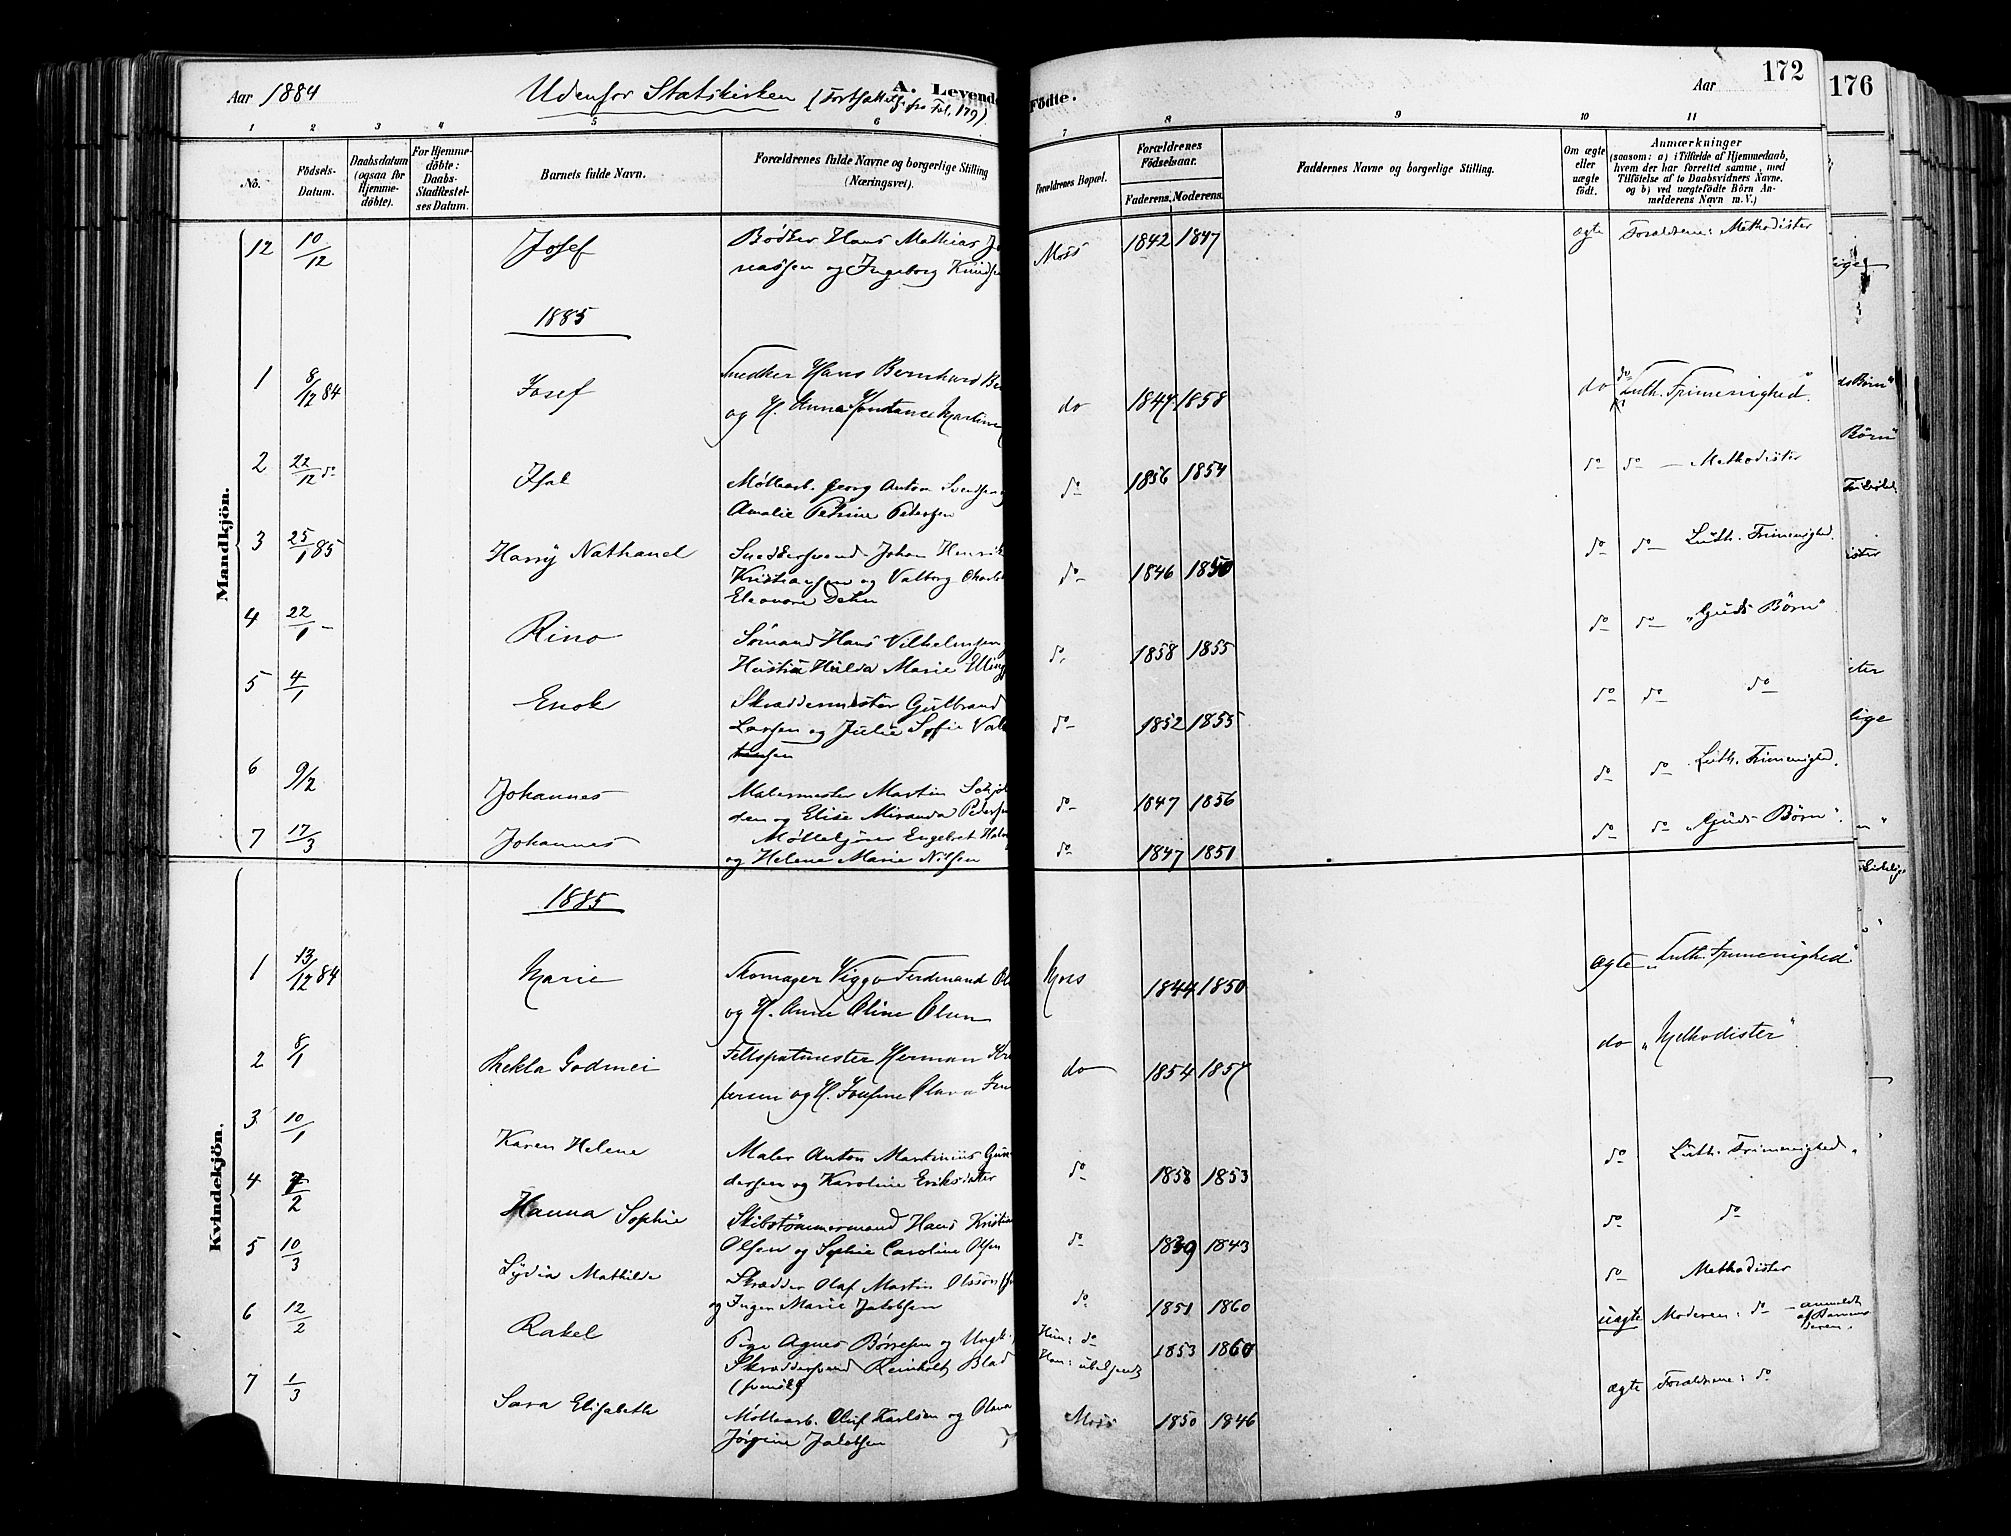 Aar 1884 Udenfor Statskirken (Fortsættelse fra Fol. 179). A. Levende Fødte. Aar 172 176
1 2 3 4 5 6 7 8 9 10 11
No. Födsels-Datum. Daabsdatum (ogsaa for Hjemmedöbte). For Hjemmedöbte: Daabs-Stadfæstelses Datum. Barnets fulde Navn. Forældrenes fulde Navne og borgerlige Stilling (Næringsvei). Forældrenes Bopæl. Forældrenes Födselsaar. Faderens. Moderens. Faddernes Navne og borgerlige Stilling. Om ægte eller uægte födt. Anmærkninger (saasom: a) i Tilfælde af Hjemmedaab, hvem der har forrettet samme, med Tilföielse af to Daabsvidners Navne, og b) ved uægtefödte Börn Anmelderens Navn m. V.)
Mandkjön.
12 10/12 Josef Bødker Hans Mathias Jo Moss 1842 1847 ægte Forældrene: Methodister
nassen og Ingeborg Knudsen
1885
1 8/12 84 Josef Snedker Hans Bernhard Be do 1847 1858 do do "Luth. Frimenighed."
og H. Anna Konstance Martine
2 22/12 do Isak Møllearb. Georg Anton Svendsen og do 1856 1854 do do — Methodister
Amalie Petrine Petersen
3 25/1 85 Harry Nathanael Snedkersvend Johan Henrik do 1846 1850 do do Luth. Frimenighed.
Kristiansen og Valborg Charlot
Eleonore Dehn
4 22/1 — Rino Sømand Hans Vilhelmsen do 1858 1855 do do "Guds Børn"
Hustru Hulda Marie Elling
5 4/1 Enok Skræddermester Gulbrand do 1852 1855 do do do
Larsen og Julie Sofie Val
tinsen
6 9/2 Johannes Malermester Martin Schjol do 1847 1856 do do Luth. Frimenighed.
den og Elise Miranda Petersen
7 17/3 Johannes Møllekjører Engebret Halv do 1847 1851 do do "Guds Børn".
og Helene Marie Nilsen
Kvindekjön.
1885
1 13/12 84 Marie Skomager Viggo Ferdinand Ol Moss 1844 1850 ægte "Luth. Frimenighed"
og H. Anne Oline Olsen
2 8/1 Thekla Godmei Feltspatmester Herman Kri do 1854 1857 do "Methodister"
og H. Josefine Olava Jen
3 10/1 Karen Helene Maler Anton Martinius Gun do 1858 1853 do Luth. Frimenighed.
dersen og Karoline Eriksdatter
4 7/2 Hanna Sophie Skibstømmermand Hans Kristian do 1839 1843 do do
Olsen og Sophie Caroline Olsen
5 10/3 Lydia Mathilde Skrædder Olaf Martin Olsson do 1851 1860 do Methodister
og Inger Marie Jakobsen
6 12/2 Rakel Pige Agnes Børresen og Ungk. Hun: do 1853 1860 uægte Moderen: do — anmeldt
Skræddersvend Reinholt Blad Han: ubekjendt
(svensk)
7 1/3 Sara Elisabeth Møllearb. Oluf Karlsen og Olava Moss 1850 1846 ægte Forældrene: do
Jørgine Jakobsen